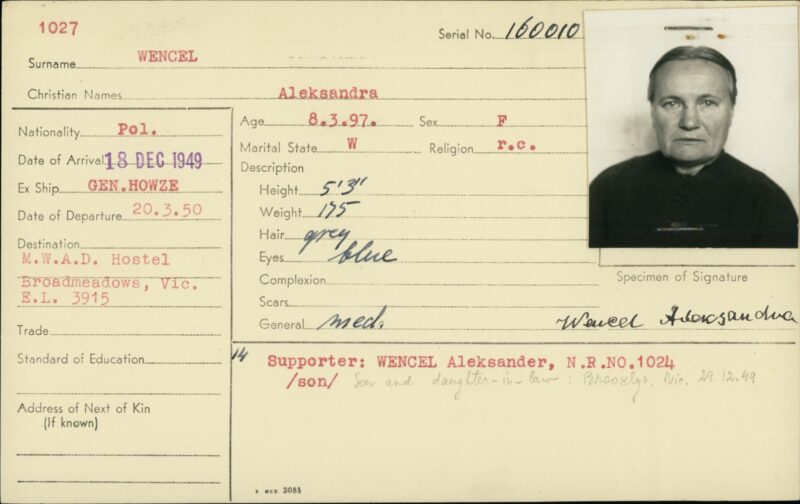 1027
Serial No. 160010
Surname WENCEL
Christian Names Aleksandra
Nationality Pol.
Date of Arrival 18 DEC 1949
Ex Ship GEN.HOWZE
Date of Departure 20.3.50
Destination
M.W.A.D. Hostel
Broadmeadows, Vic.
E.L. 3915
Trade
Standard of Education
Address of Next of Kin
(If known)
Age 8.3.97. Sex F
Marital State W Religion r.c.
Description
Height 5'3"
Weight 175
Hair grey
Eyes blue
Complexion
Scars
General med.
Specimen of Signature
Wencel Aleksandra
14 Supporter: WENCEL Aleksander, N.R.NO.1024
/son/ Son and daughter-in-law: Brooklyn, Vic. 29.12.49